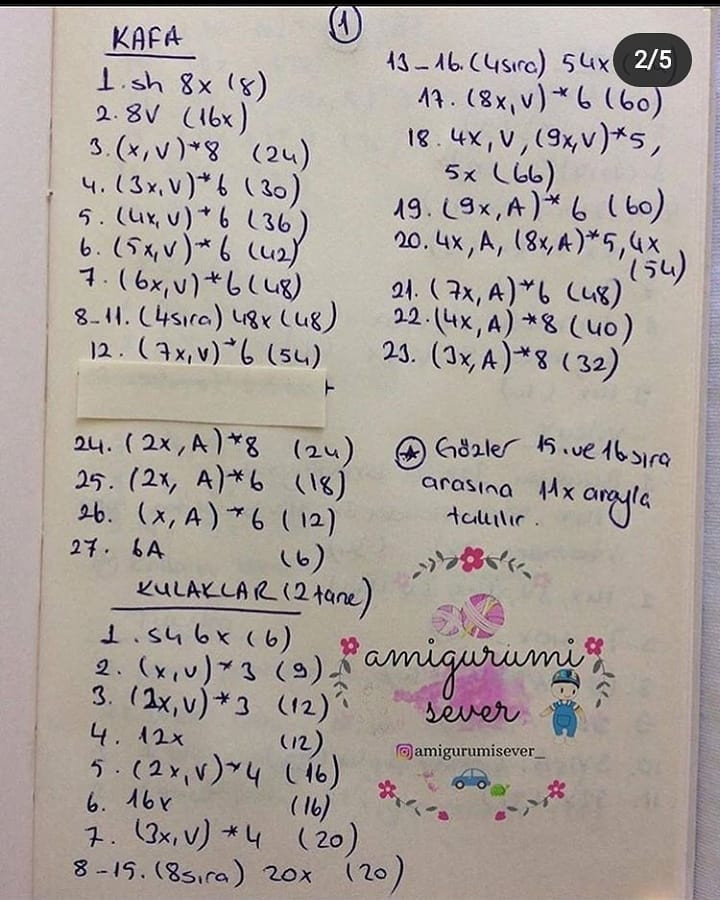 1
KAFA
1. sh 8x (8)
2. 8V (16x)
3. (x, V)*8 (24)
4. (3x, V)*6 (30)
5. (4x, V)*6 (36)
6. (5x, V)*6 (42)
7. (6x, V)*6 (48)
8-11. (4sıra) 48x (48)
12. (7x, V)*6 (54)
24. (2x, A)*8 (24)
25. (2x, A)*6 (18)
26. (x, A)*6 (12)
27. 6A (6)
KULAKLAR (2 tane)
1. sh 6x (6)
2. (x, V)*3 (9)
3. (2x, V)*3 (12)
4. 12x (12)
5. (2x, V)*4 (16)
6. 16x (16)
7. (3x, V)*4 (20)
8-15. (8sıra) 20x (20)
2/5
13-16. (4sıra) 54x
17. (8x, V)*6 (60)
18. 4x, V, (9x, V)*5,
5x (66)
19. (9x, A)*6 (60)
20. 4x, A, (8x, A)*5, 4x
(54)
21. (7x, A)*6 (48)
22. (4x, A)*8 (40)
23. (3x, A)*8 (32)
Gözler 15. ve 16. sıra
arasına 11x arayla
takılır.
amigurumi
sever
amigurumisever_